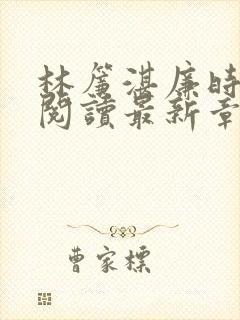 林簷湛廉時
閱讀最新章
曹家標